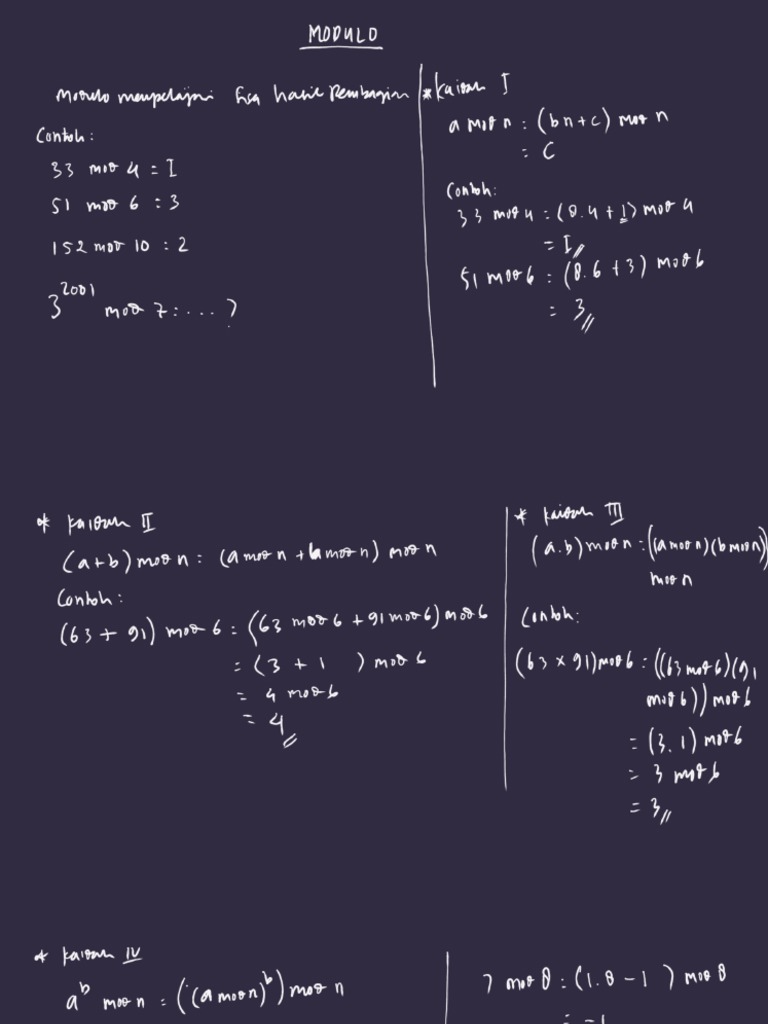 MODULO
Modulo mempelajari sisa hasil pembagian
Contoh:
33 mod 4 = 1
51 mod 6 : 3
152 mod 10 : 2
3^2001 mod 7 : ... ?
* Kaidah I
a mod n : (bn+c) mod n
: C
Contoh:
33 mod 4 : (8.4+1) mod 4
= 1
51 mod 6 : (8.6+3) mod 6
= 3
* Kaidah II
(a+b) mod n : (a mod n + b mod n) mod n
Contoh:
(63 + 91) mod 6 : (63 mod 6 + 91 mod 6) mod 6
= (3 + 1 ) mod 6
= 4 mod 6
= 4
* Kaidah III
(a.b) mod n : ((a mod n)(b mod n))
mod n
Contoh:
(63 x 91) mod 6 : ((63 mod 6)(91
mod 6)) mod 6
= (3.1) mod 6
= 3 mod 6
= 3
* Kaidah IV
a^b mod n : ((a mod n)^b) mod n
7 mod 8 : (1.8 - 1 ) mod 8
: -1